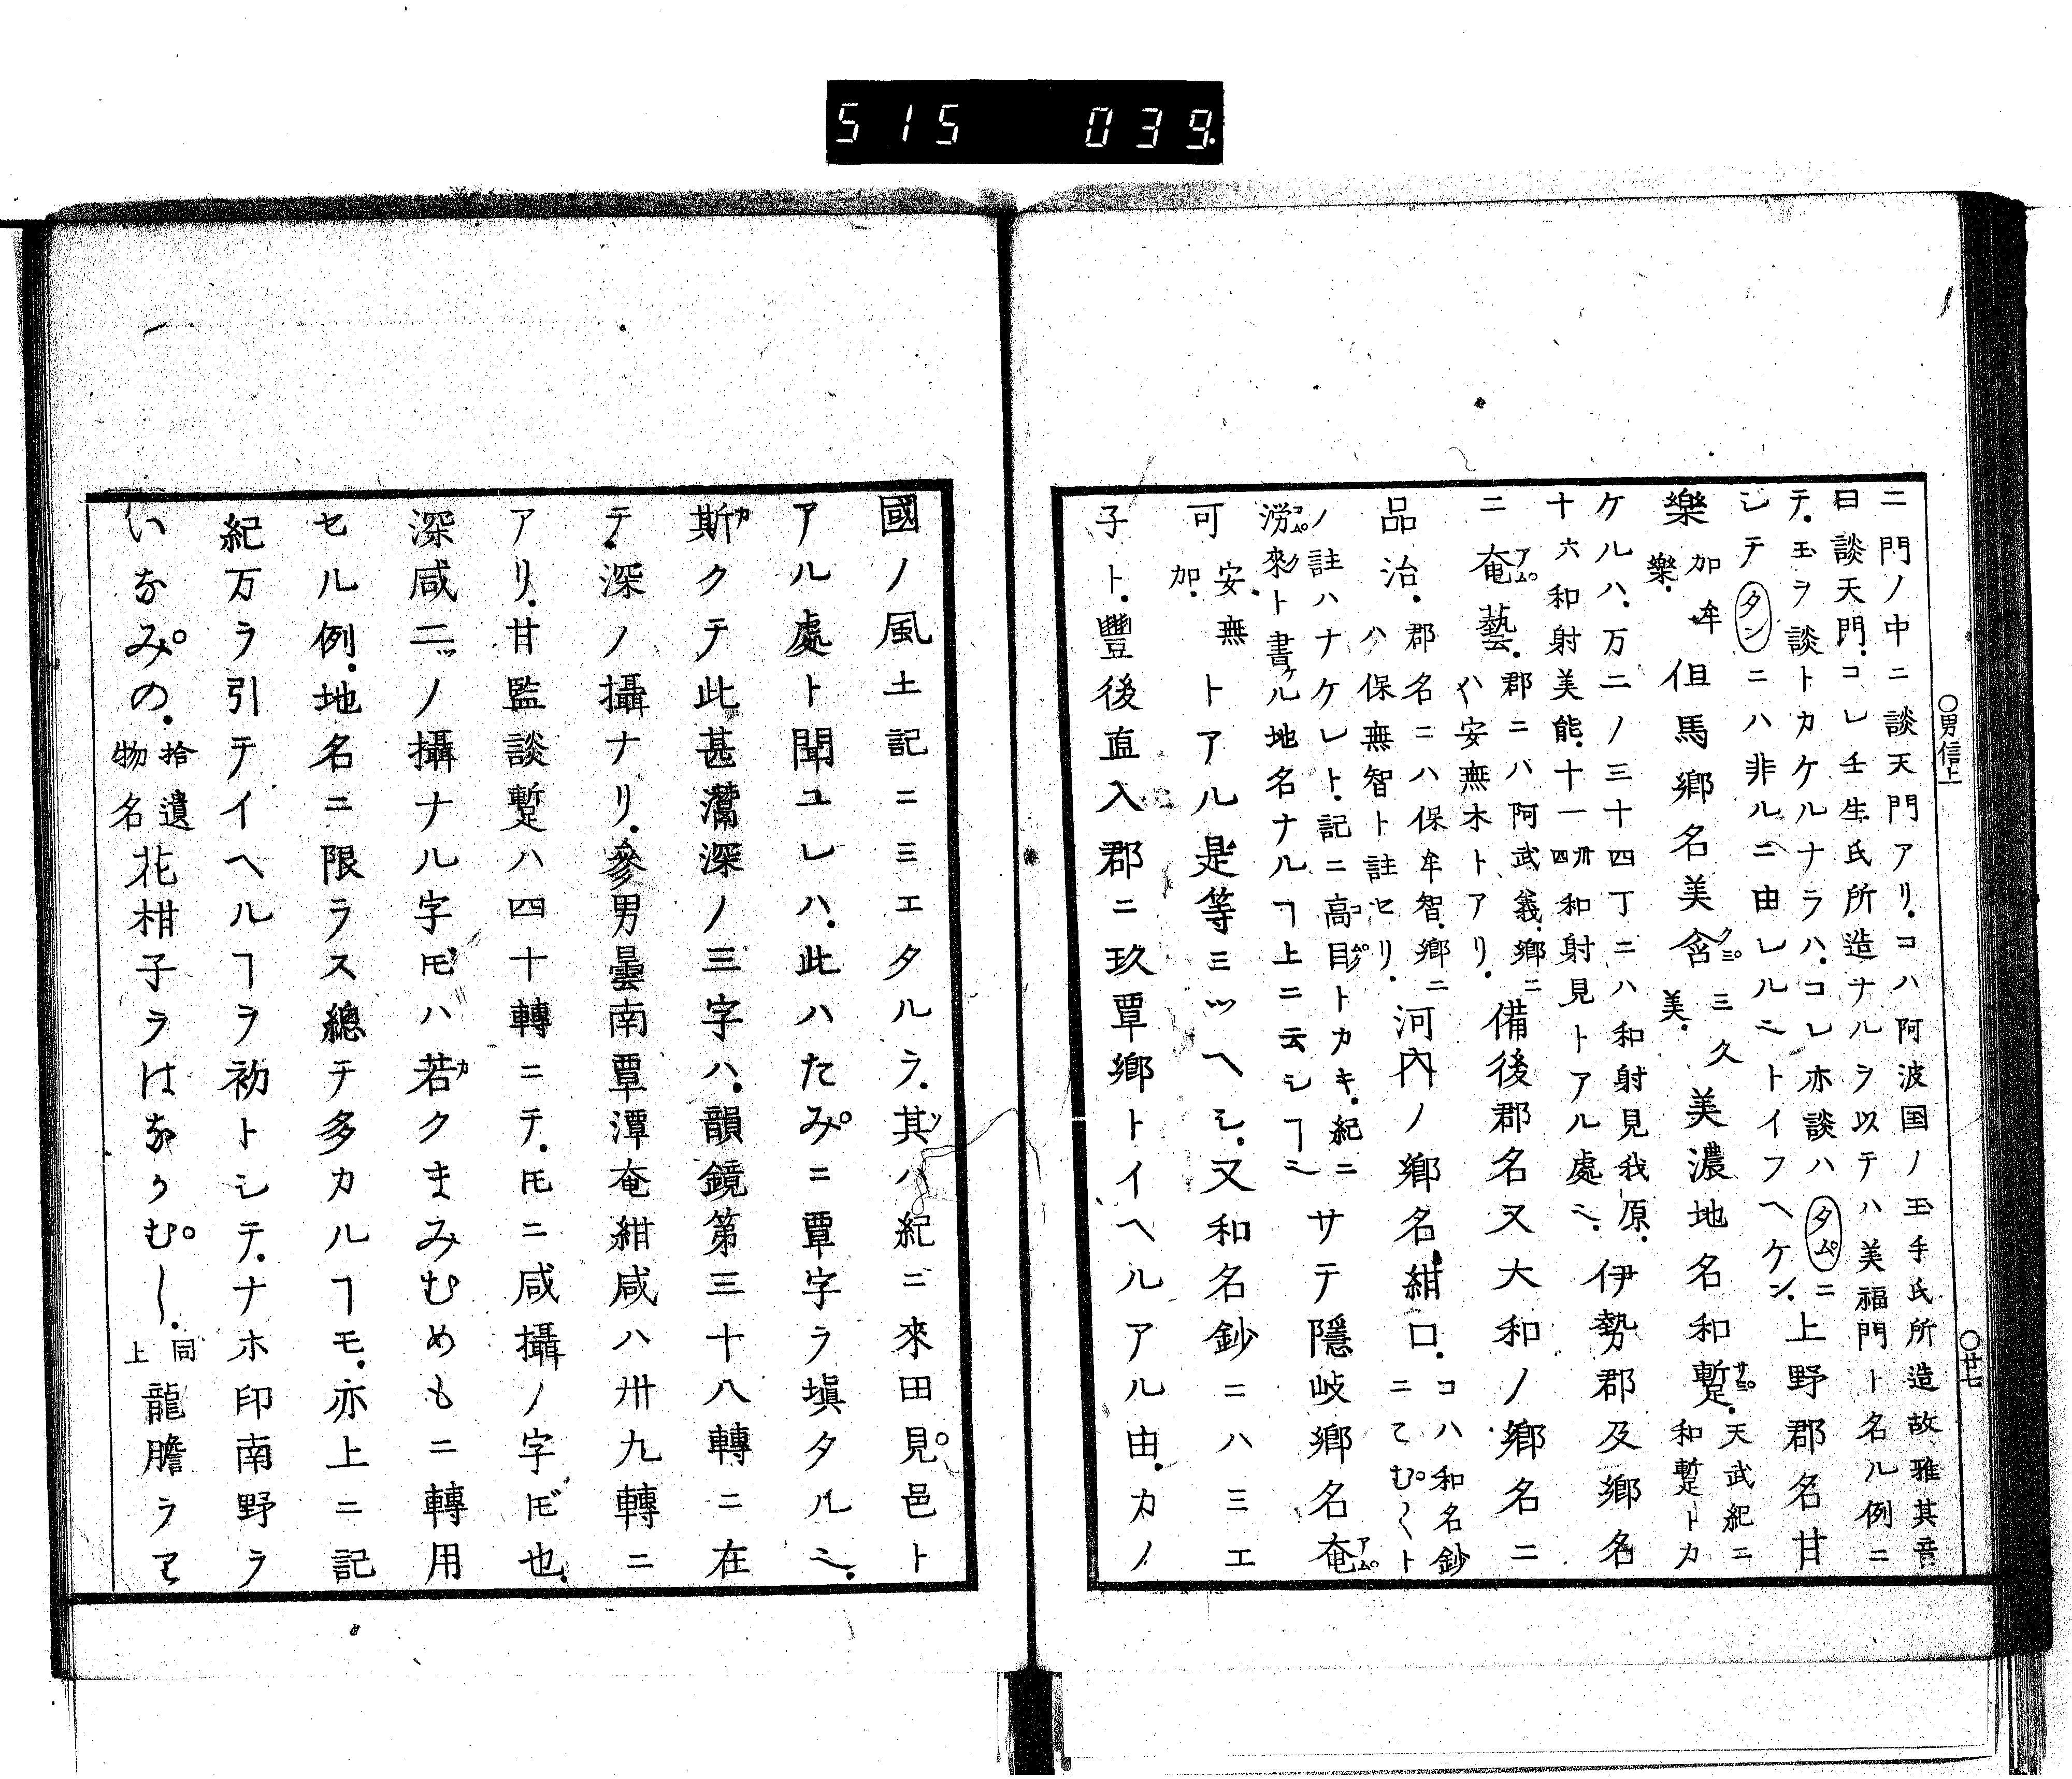 515 039.
○男信上
○廿七
ニ門ノ中ニ談天門アリ.コハ阿波国ノ玉手氏所造故雅其音.
曰談天門.コレ壬生氏所造ナルヲ以テハ美福門ト名ル例ニ
テ.玉ヲ談トカケルナラハ.コレ亦談ハタム゚ニ
シテタンニハ非ルニ由レルニトイフヘケン.
上野郡名甘
樂
加牟
樂.
但馬郷名美含クミ゚
三久
美.
美濃地名和蹔サミ゚.
天武紀ニ
和蹔トカ
ケルハ.万二ノ三十四丁ニハ和射見我原.
十六和射美能.十一卅四和射見トアル處ニ.
伊勢郡及郷名
ニ奄アム゚藝.
郡ニハ阿武義.郷ニ
ハ安無木トアリ.
備後郡名又大和ノ郷名ニ
品治.
郡名ニハ保牟智.郷ニ
ハ保無智ト註セリ.
河內ノ郷名紺口.
コハ和名鈔
ニこむ゚〱ト
ノ註ハナケレト.記ニ高目トカキ.紀ニ
澇コム゚來クト書ケル地名ナルヿ上ニ云シヿニ
サテ隱岐郷名奄アム゚
可
安.無
加.
トアル是等ミツヘシ.又和名鈔ニハミエ
子ト.豐後直入郡ニ玖覃郷トイヘルアル由.カノ
國ノ風土記ニミエタルヲ.其ソハ紀ニ來田見゚邑ト
アル處ト聞ユレハ.此ハたみ゚ニ覃字ヲ塡タルニ.
斯カクテ此甚灊深ノ三字ハ.韻鏡第三十八轉ニ在
テ.深ノ攝ナリ.參男曇南覃潭奄紺咸ハ卅九轉ニ
アリ.甘監談蹔ハ四十轉ニテ.𪜈ニ咸攝ノ字𪜈也.
深咸二ツノ攝ナル字𪜈ハ若カクまみむめもニ轉用
セル例.地名ニ限ラス總テ多カルヿモ.亦上ニ記
紀万ヲ引テイヘルヿヲ初トシテ.ナホ印南野ヲ
いなみ゚の.
拾遺
物名
花柑子ヲはなかむ゚し.
同
上
龍膽ヲりう